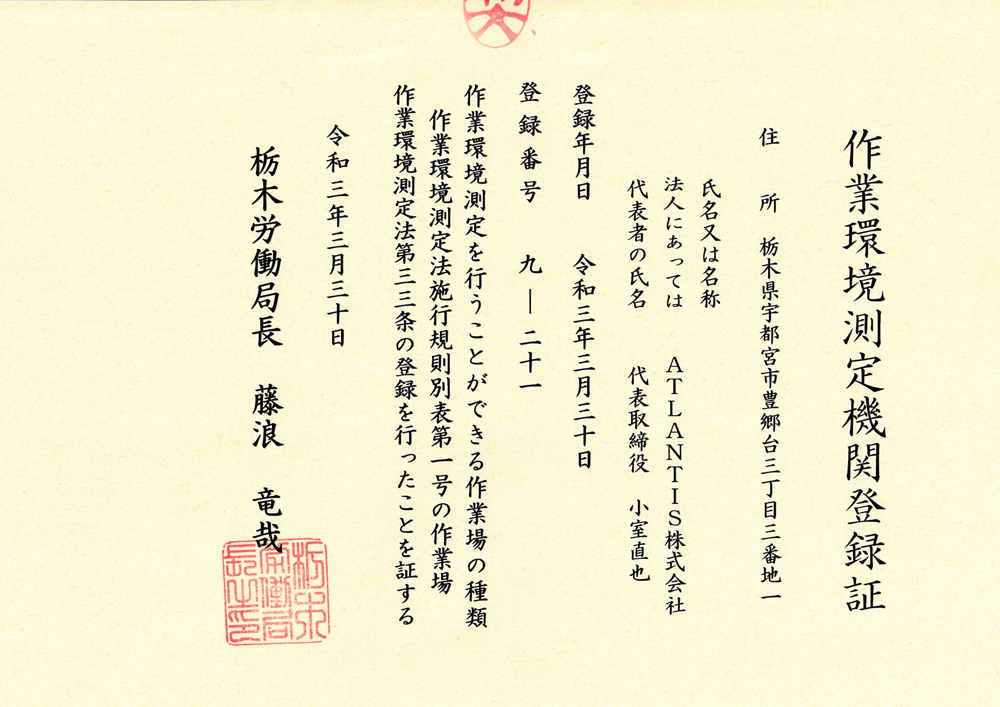 作業環境測定機関登録証
住所 栃木県宇都宮市豊郷台三丁目三番地一
氏名又は名称
法人にあっては ATLANTIS株式会社
代表者の氏名 代表取締役 小室直也
登録年月日 令和三年三月三十日
登録番号 九―二十一
作業環境測定を行うことができる作業場の種類
作業環境測定法施行規則別表第一号の作業場
作業環境測定法第三三条の登録を行ったことを証する
令和三年三月三十日
栃木労働局長 藤浪 竜哉
栃木労働局長之印